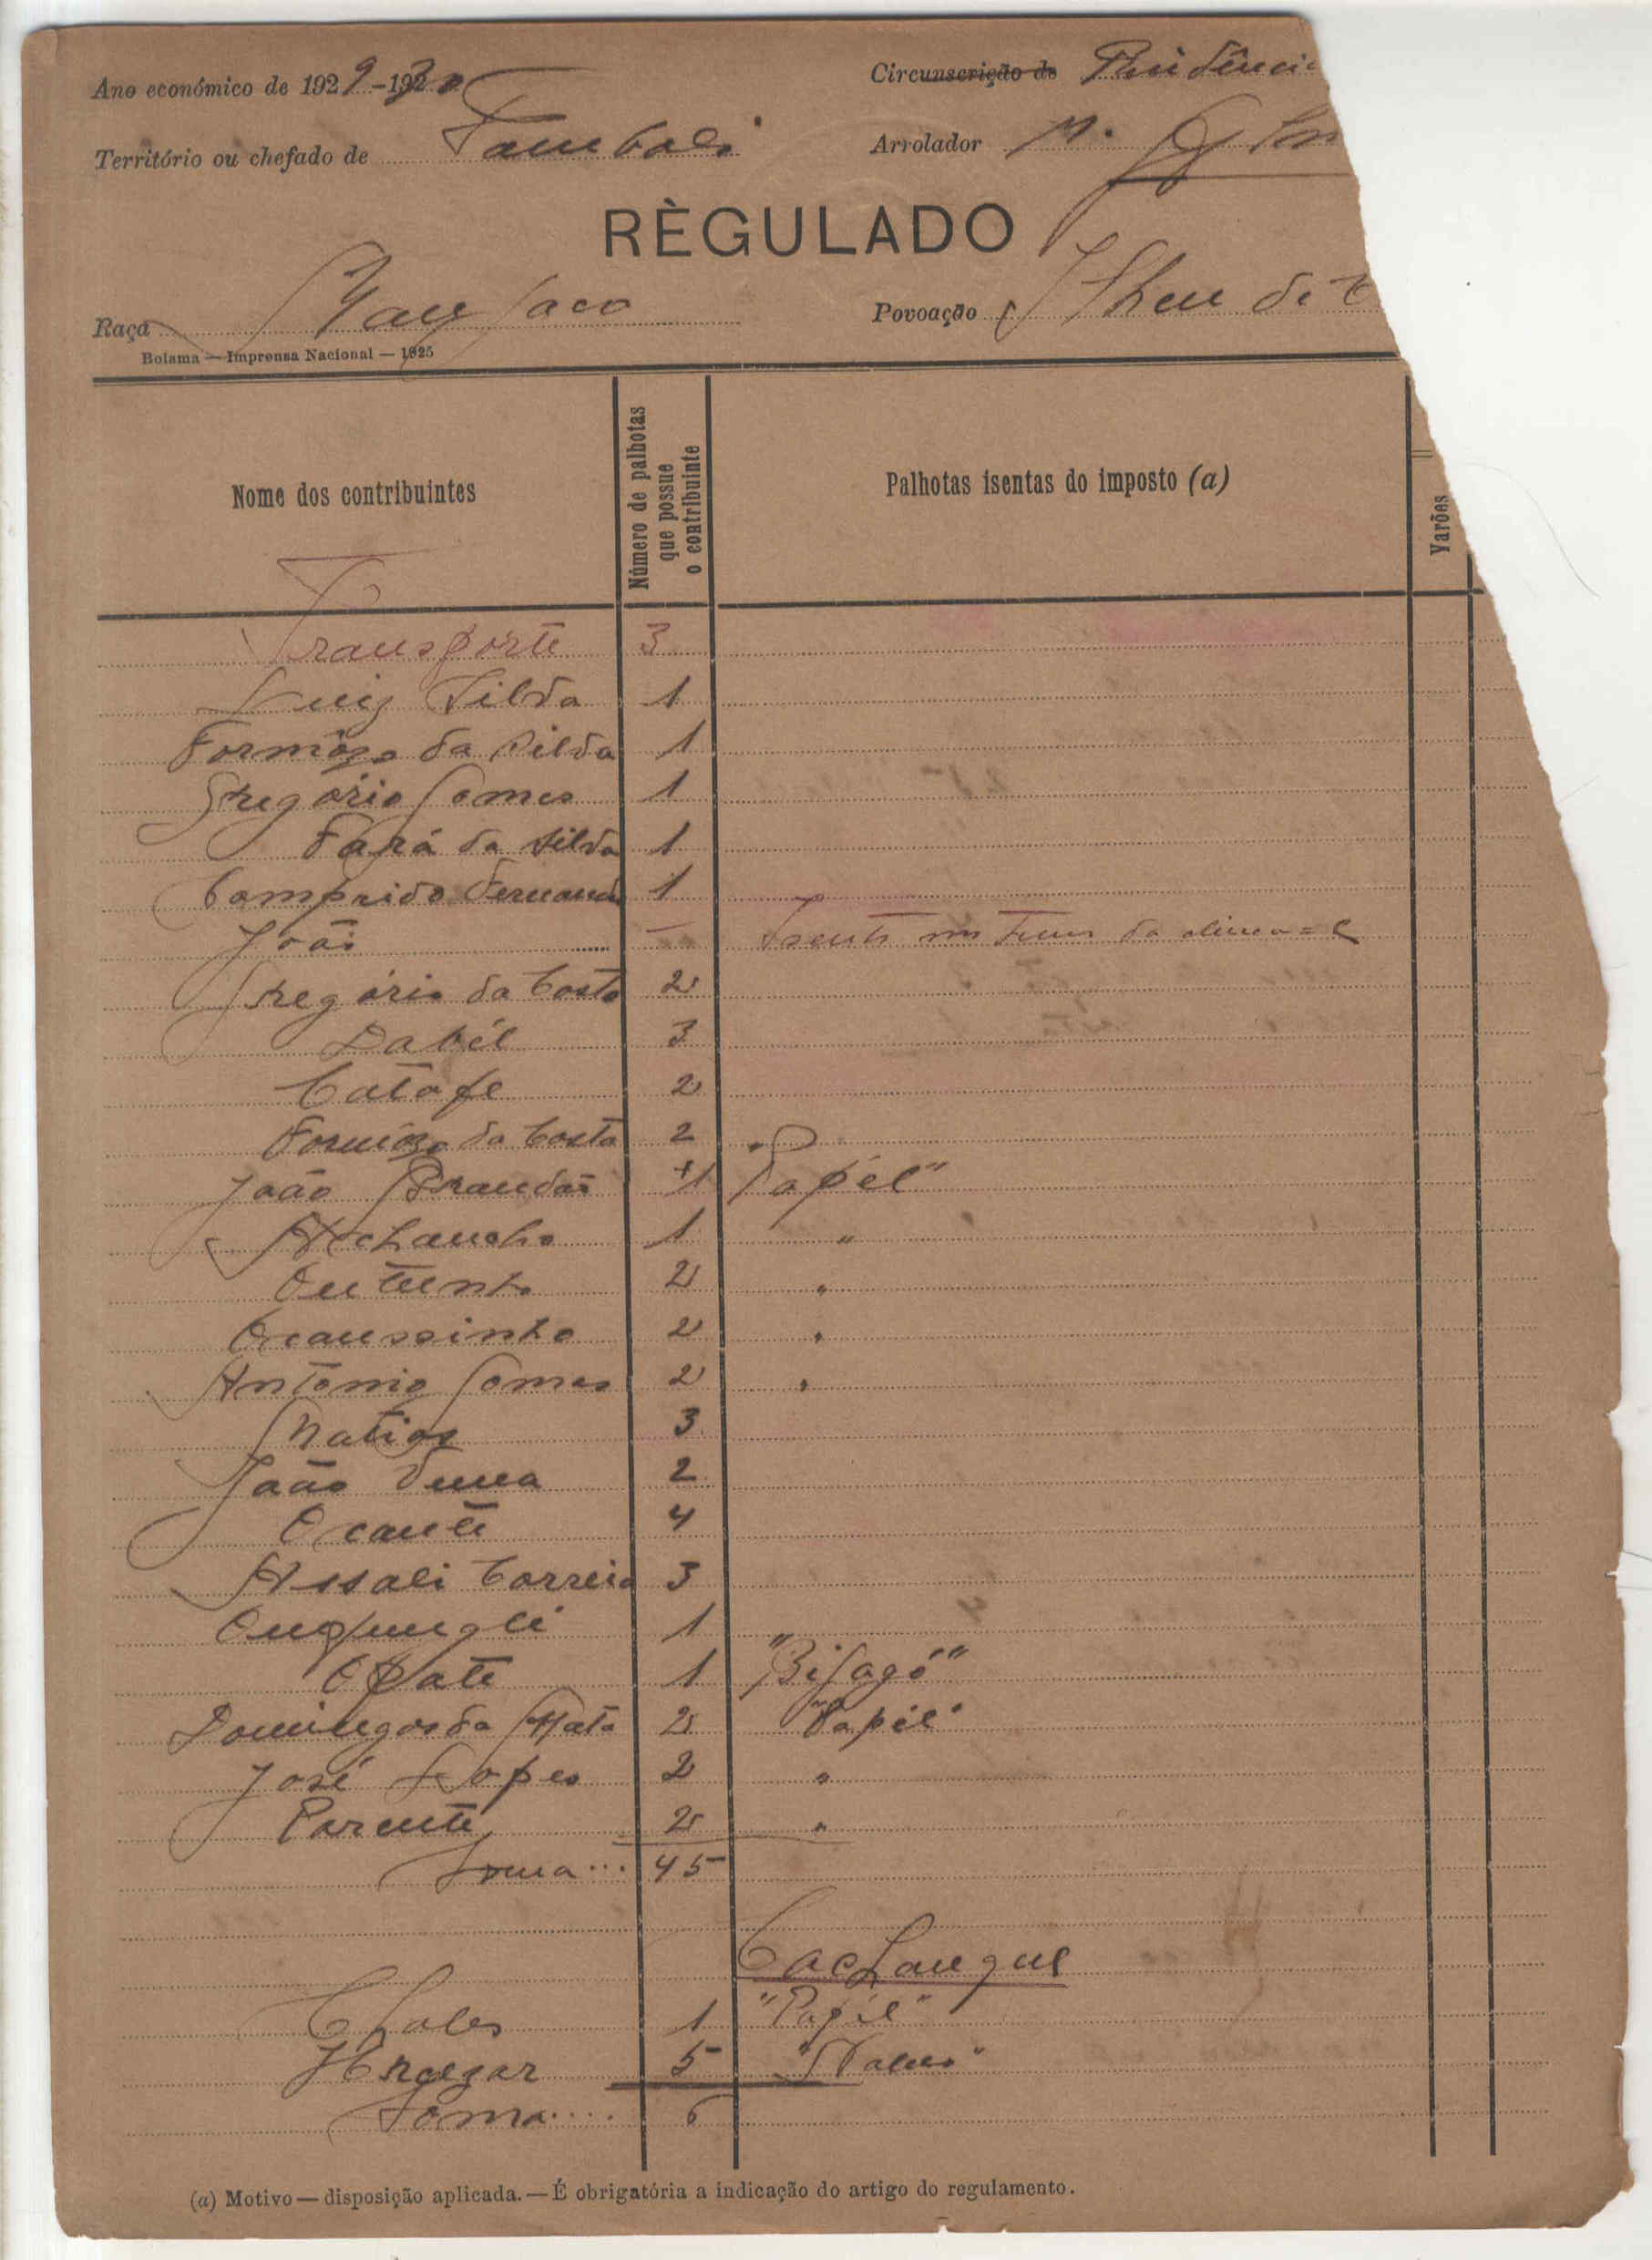 Ano económico de 1929-1930
Circunscrição de Residênci
Território ou chefado de Tambali
Arrolador M.
RÈGULADO
Raça Manjaco
Povoação Ilheu de
Bolama — Imprensa Nacional — 1925
Nome dos contribuintes
Número de palhotas que possue o contribuinte
Palhotas isentas do imposto (a)
Varões
Transporte 3
Luiz Silva 1
Formôzo da Silva 1
Gregório Gomes 1
Fará da Silva 1
Comprido Fernand 1
João — Isento nos termos da alinea = e
Gregório da Costa 2
Dabél 3
Catafe 2
Formôzo da Costa 2
João Brandão 1 "Papél"
1 "
2 "
2 "
António Gomes 2 "
Matias 3
João 2
4
Assali Correia 3
1
Opate 1 "Bijagó"
Domingos da Mata 2 "Papél"
José Lopes 2 "
Parente 2 "
Soma... 45
Cachangue
1 "Papél"
5
Soma.... 6
(a) Motivo — disposição aplicada. — É obrigatória a indicação do artigo do regulamento.